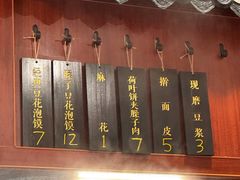 豆花泡馍 7
臊子豆花泡馍 12
麻花 1
荷叶饼夹臊子肉 7
擀面皮 5
现磨豆浆 3